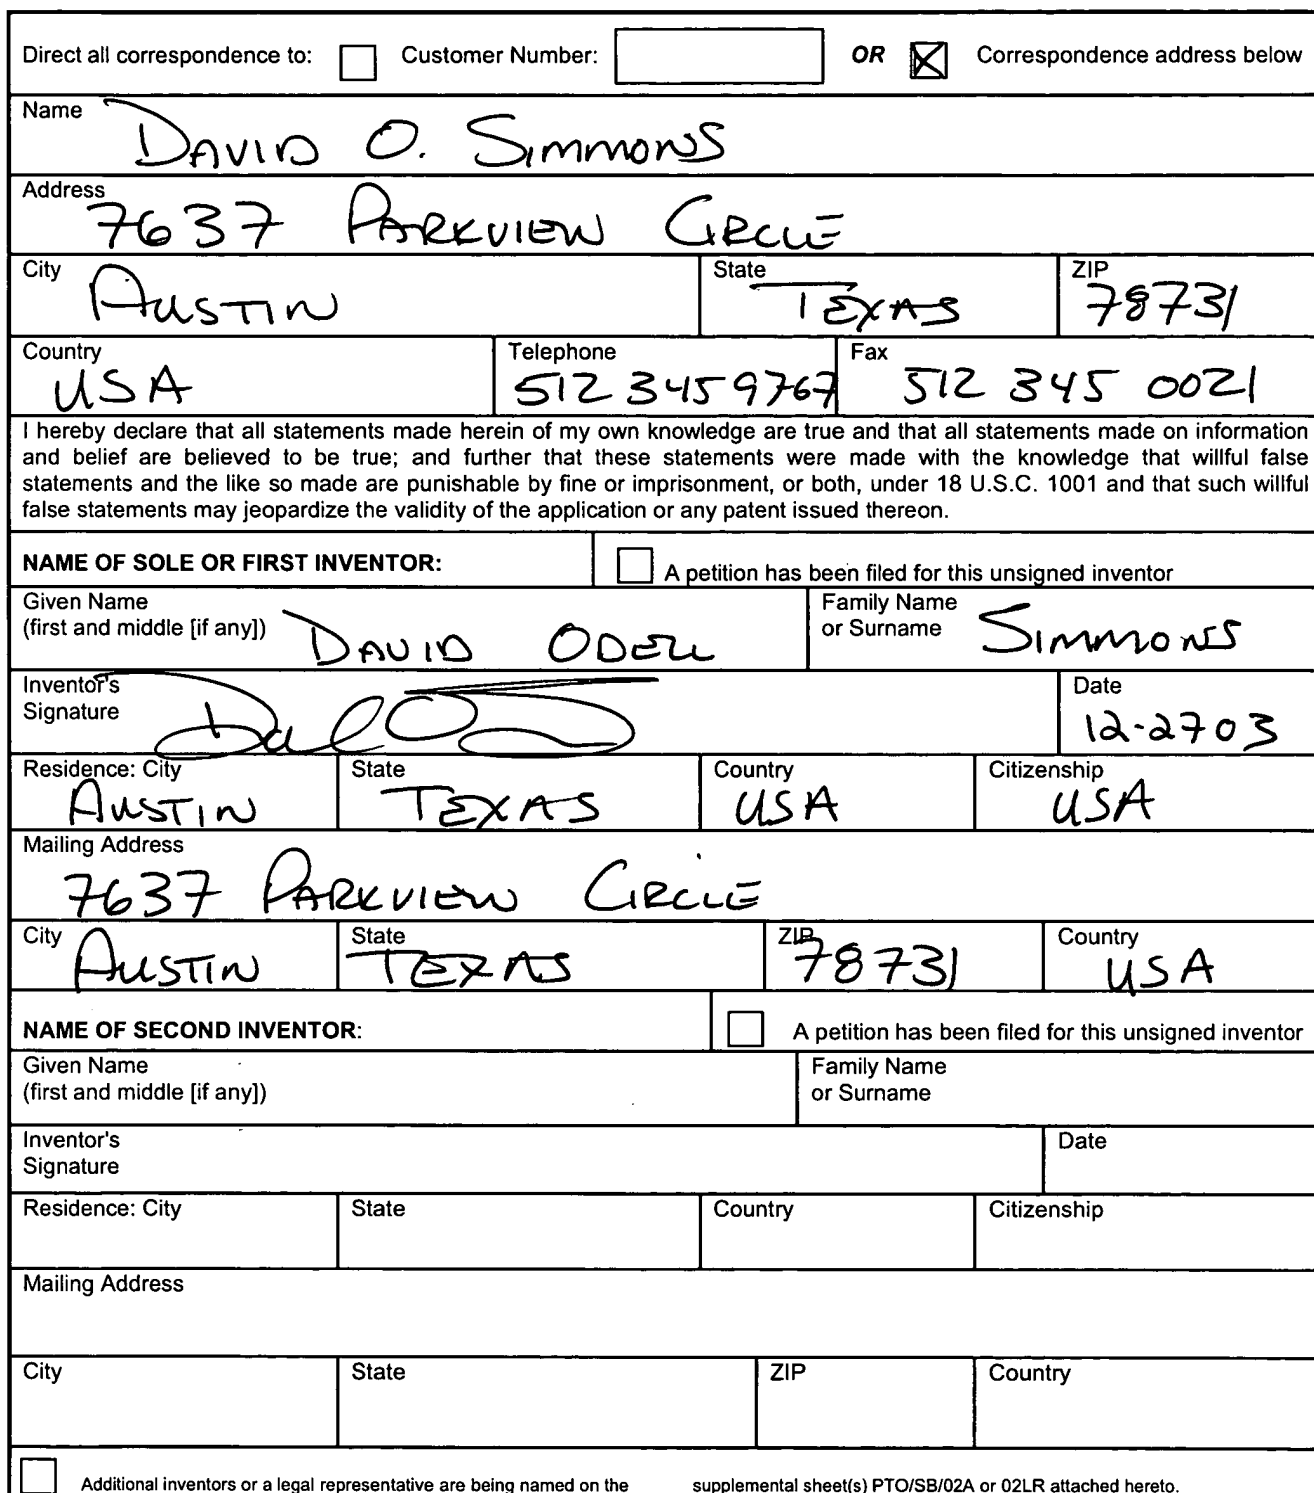 Direct all correspondence to: Customer Number: OR Correspondence address below
Name
DAVID O. SIMMONS
Address
7637 PARKVIEW CIRCLE
City State ZIP
AUSTIN TEXAS 78731
Country Telephone Fax
USA 512 345 9767 512 345 0021
I hereby declare that all statements made herein of my own knowledge are true and that all statements made on information
and belief are believed to be true; and further that these statements were made with the knowledge that willful false
statements and the like so made are punishable by fine or imprisonment, or both, under 18 U.S.C. 1001 and that such willful
false statements may jeopardize the validity of the application or any patent issued thereon.
NAME OF SOLE OR FIRST INVENTOR: A petition has been filed for this unsigned inventor
Given Name Family Name
(first and middle [if any]) DAVID ODELL or Surname SIMMONS
Inventor's Date
Signature 12-27 03
Residence: City State Country Citizenship
AUSTIN TEXAS USA USA
Mailing Address
7637 PARKVIEW CIRCLE
City State ZIP Country
AUSTIN TEXAS 78731 USA
NAME OF SECOND INVENTOR: A petition has been filed for this unsigned inventor
Given Name Family Name
(first and middle [if any]) or Surname
Inventor's Date
Signature
Residence: City State Country Citizenship
Mailing Address
City State ZIP Country
Additional inventors or a legal representative are being named on the supplemental sheet(s) PTO/SB/02A or 02LR attached hereto.